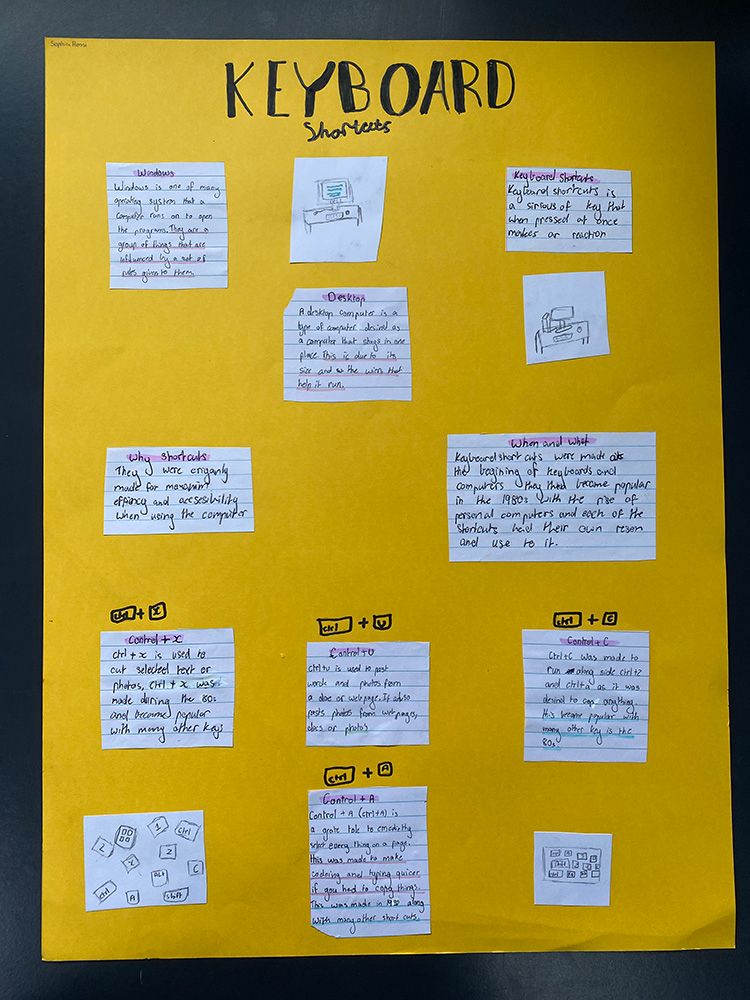 Sophia Rossi
KEYBOARD
Shortcuts
Windows
Windows is one of many
operating system that a
computer runs on to open
the programs. They are a
group of things that are
influenced by a set of
rules givns to them.
Keyboard Shortcuts
Keyboard shortcuts is
a sirious of key that
when pressed at once
makes ar reaction
Desktop
A desktop computer is a
type of computer desired as
a computer that stays in one
place This is due to its
size and the wires that
help it run.
Why Shortcuts
They were origanly
made for maxamim
effincy and accsesibility
when using the computer
When and What
Keyboard short cuts were made
the begining of keyboards and
computers they then became popular
in the 1980s with the rise of
personal computers and each of the
shortcuts had their own reson
and use to it.
ctrl + X
Control + x
ctrl + x is used to
cut selected text or
photos, ctrl + x was
made during the 80s
and became popular
with many other keys
ctrl + U
Control + U
ctrl+u is used to past
words and photos from
a doc or webpage. It also
pasts photos from webpages,
docs or photos
ctrl + C
Control + C
Ctrl+C was made to
run along side ctrl+z
and ctrl+a as it was
desind to copy anything.
this became popular with
many other key is the
80s
ctrl + A
Control + A
Control + A (ctrl+A) is
a grate to
select every thing on a page.
this was made to make
codering and typing quicer
if you had to copy things.
This was made in along
with many other short cuts.
1 ctrl
2
x Z
alt C
ctrl A shift